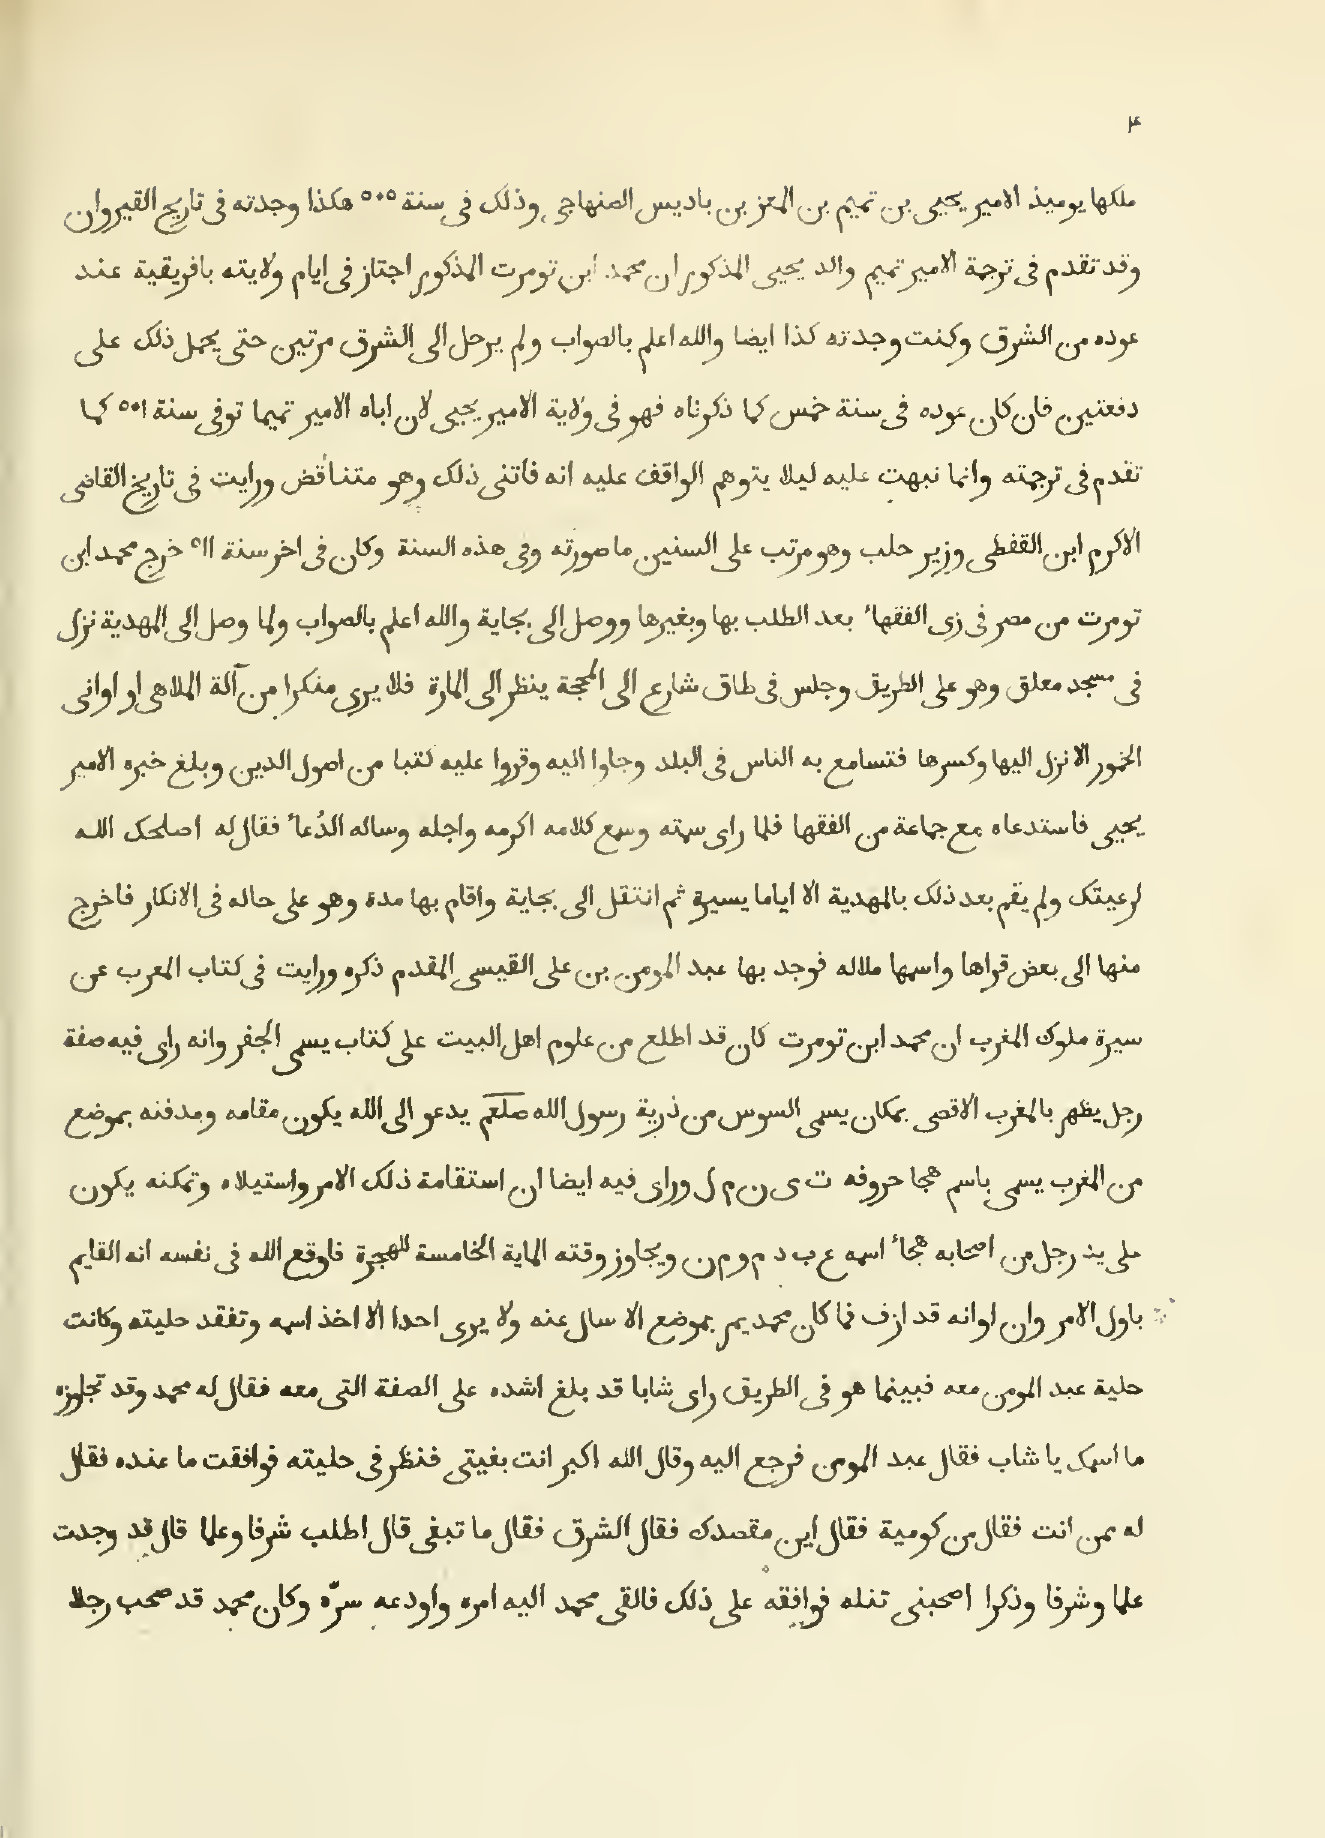 ۴
ملكها يوميذ الامير يحيى بن تميم بن المعز بن باديس الصنهاجى وذلك فى سنة ٥٠٥ هكذا وجدته فى تاريخ القيروان
وقد تقدم فى ترجمة الامير تميم والد يحيى المذكور ان محمد ابن تومرت المذكور اجتاز فى ايام ولايته بافريقية عند
عوده من الشرق وكنت وجدته كذا ايضا والله اعلم بالصواب ولم يرحل الى الشرق مرتين حتى يحمل ذلك على
دفعتين فان كان عوده فى سنة خمس كما ذكرناه فهو فى ولاية الامير يحيى لان اباه الامير تميما توفى سنة ٥٠١ كما
تقدم فى ترجمته وانما نبهت عليه ليلا يتوهم الواقف عليه انه فاتنى ذلك وهو متناقض ورايت فى تاريخ القاضى
الاكرم ابن القفطى وزير حلب وهو مرتب على السنين ما صورته وفى هذه السنة وكان فى اخر سنة ٥١١ خرج محمد ابن
تومرت من مصر فى زى الفقهاء بعد الطلب بها وبغيرها ووصل الى بجاية والله اعلم بالصواب ولما وصل الى المهدية نزل
فى مسجد معلق وهو على الطريق وجلس فى طاق شارع الى المحجة ينظر الى المارة فلا يرى منكرا من آلة الملاهى او اوانى
الخمور الا نزل اليها وكسرها فتسامع به الناس فى البلد وجاوا اليه وقروا عليه كتبا من اصول الدين وبلغ خبره الامير
يحيى فاستدعاه مع جماعة من الفقها فلما راى سمته وسمع كلامه اكرمه واجله وساله الدُعاء فقال له اصلحك الله
لرعيتك ولم يقم بعد ذلك بالمهدية الا اياما يسيرة ثم انتقل الى بجاية واقام بها مدة وهو على حاله فى الانكار فاخرج
منها الى بعض قراها واسمها ملاله فوجد بها عبد المومن بن على القيسى المقدم ذكره ورايت فى كتاب المعرب عن
سيرة ملوك المغرب ان محمد ابن تومرت كان قد اطلع من علوم اهل البيت على كتاب يسمى الجفر وانه راى فيه صفة
رجل يظهر بالمغرب الاقصى بمكان يسمى السوس من ذرية رسول الله صلعم يدعو الى الله يكون مقامه ومدفنه بموضع
من المغرب يسمى باسم هجا حروفه ت ى ن م ل وراى فيه ايضا ان استقامة ذلك الامر واستيلاه وتمكنه يكون
على يد رجل من اصحابه هجاء اسمه ع ب د م و م ن ويجاوز وقته الماية الخامسة للهجرة فاوقع الله فى نفسه انه القايم
باول الامر وان اوانه قد ازف فما كان محمد يمر بموضع الا سال عنه ولا يرى احدا الا اخذ اسمه وتفقد حليته وكانت
حلية عبد المومن معه فبينما هو فى الطريق راى شابا قد بلغ اشده على الصفة التى معه فقال له محمد وقد تجاوزه
ما اسمك يا شاب فقال عبد المومن فرجع اليه وقال الله اكبر انت بغيتى فنظر فى حليته فوافقت ما عنده فقال
له ممن انت فقال من كومية فقال اين مقصدك فقال الشرق فقال ما تبغى قال اطلب شرفا وعلما قال قد وجدت
علما وشرفا وذكرا اصحبنى تنله فوافقه على ذلك فالقى محمد اليه امره واودعه سرّه وكان محمد قد صحب رجلا